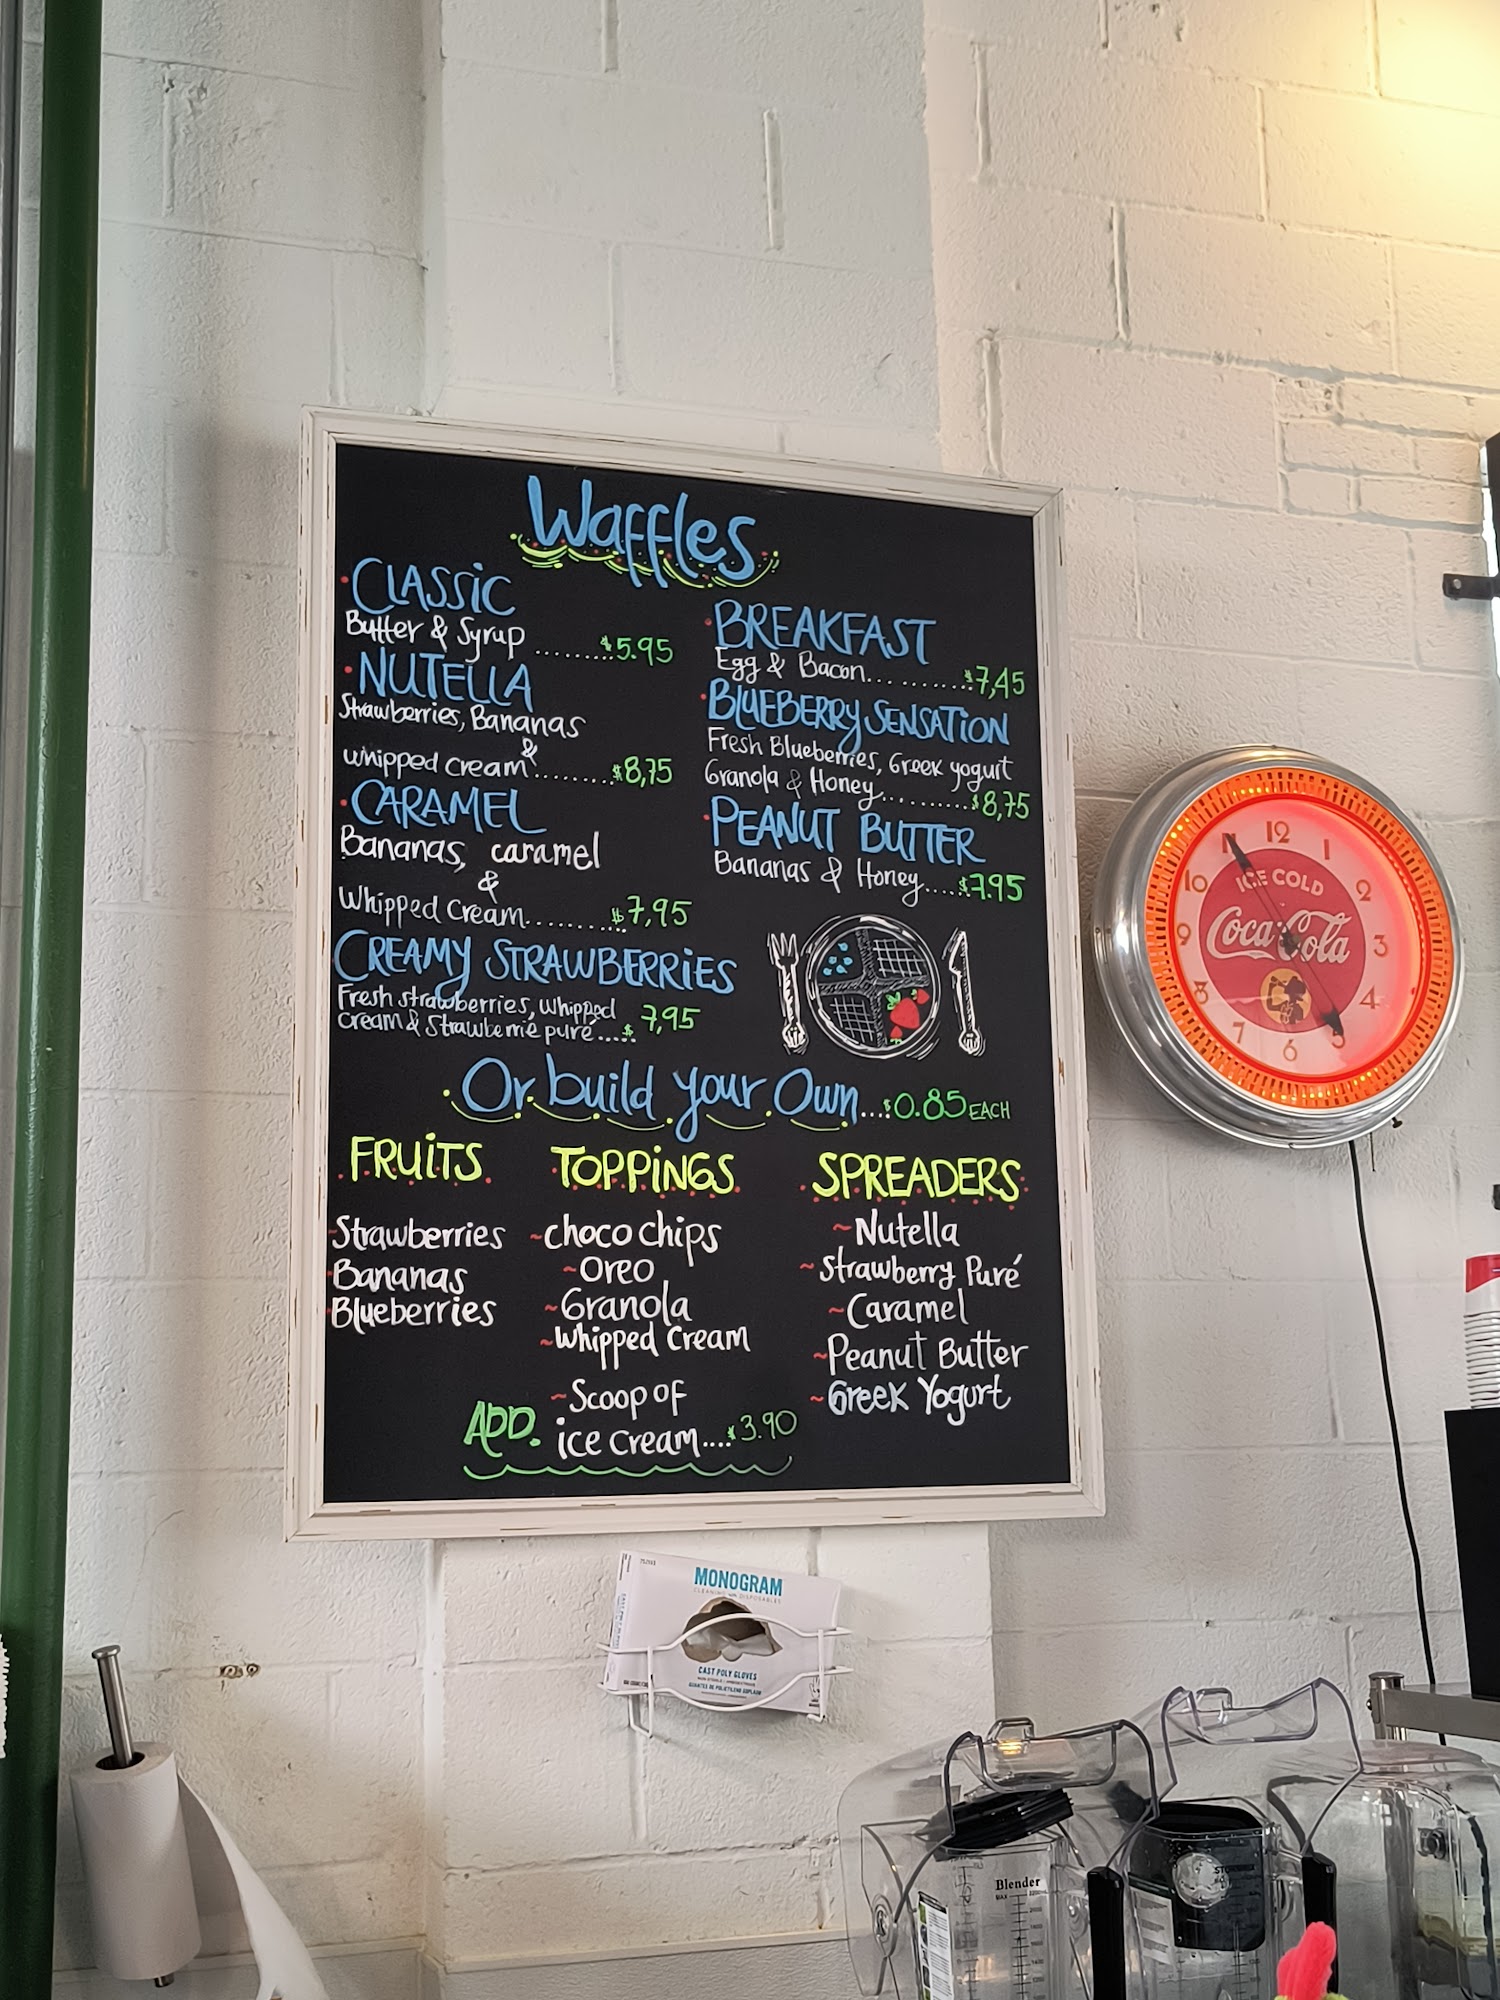 Waffles
CLASSIC
Butter & Syrup ......... $5.95
NUTELLA
Strawberries, Bananas
&
whipped cream ......... $8,75
CARAMEL
Bananas, caramel
&
Whipped Cream ......... $7,95
CREAMY STRAWBERRIES
Fresh strawberries, Whipped
cream & Strawberrie puré ..... $7,95
BREAKFAST
Egg & Bacon ............ $7,45
BLUEBERRY SENSATION
Fresh Blueberries, Greek yogurt
Granola & Honey ........... $8,75
PEANUT BUTTER
Bananas & Honey ..... $7.95
Or build your Own ... $0.85 EACH
FRUITS
Strawberries
Bananas
Blueberries
TOPPINGS
~choco chips
~Oreo
~Granola
~Whipped Cream
ADD. ~Scoop of
ice cream .... $3.90
SPREADERS
~Nutella
~Strawberry Puré
~Caramel
~Peanut Butter
~Greek Yogurt
12
1
2
3
4
5
6
7
8
9
10
11
ICE COLD
Coca-Cola
MONOGRAM
CLEANING DISPOSABLES
CAST POLY GLOVES
Blender
MAX